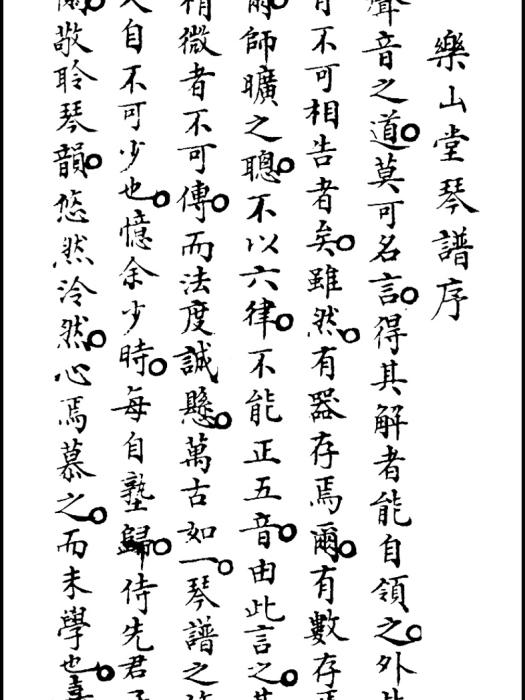 樂山堂琴譜序
聲音之道。莫可名言。得其解者能自領之。外此
有不可相告者矣。雖然。有器存焉爾。有數存焉
爾。師曠之聰。不以六律。不能正五音。由此言之。其
精微者不可傳。而法度誠懸。萬古如一。琴譜之
自不可少也。憶余少時。每自塾歸。侍先君子
敬聆琴韻。悠然泠然。心焉慕之。而未學也。